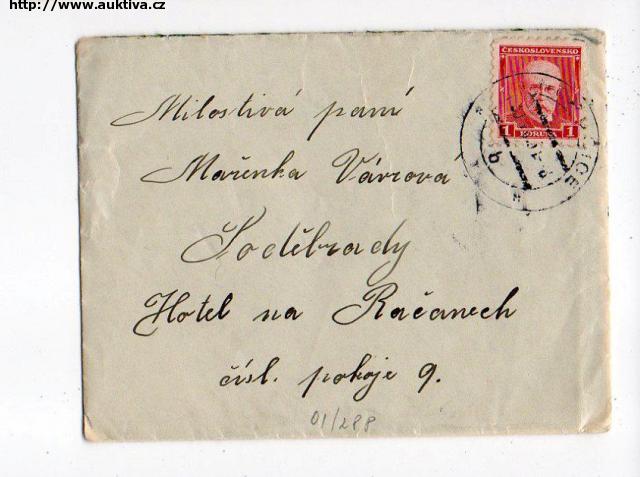 http://www.auktiva.cz
ČESKOSLOVENSKO
1 KORUNA 1
Milostivá paní
Mařenka Vávrová
Poděbrady
Hotel na Račanech
čísl. pokoje 9.
01/288